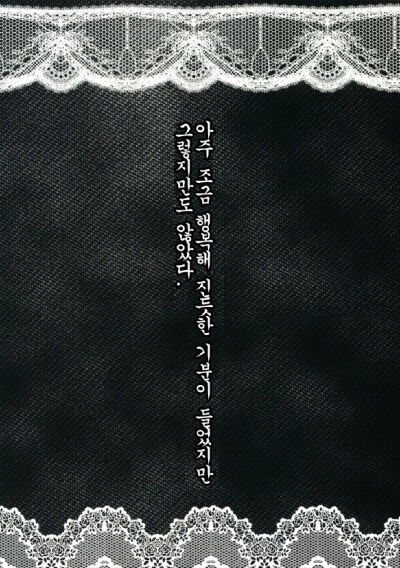 아주 조금 행복해 지듯한 기분이 들었지만
그렇지만도 않았다.